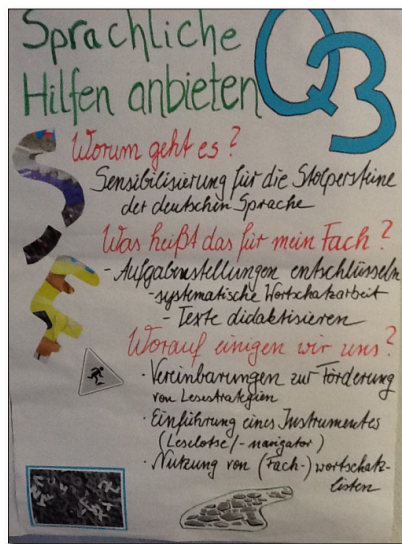 Sprachliche
Hilfen anbieten
Q3
Worum geht es?
Sensibilisierung für die Stolpersteine
der deutschen Sprache
Was heißt das für mein Fach?
- Aufgabenstellungen entschlüsseln
- systematische Wortschatzarbeit
- Texte didaktisieren
Worauf einigen wir uns?
· Vereinbarungen zur Förderung
von Lesestrategien
· Einführung eines Instrumentes
(Leselotse/-navigator)
· Nutzung von (Fach-)wortschatz-
listen